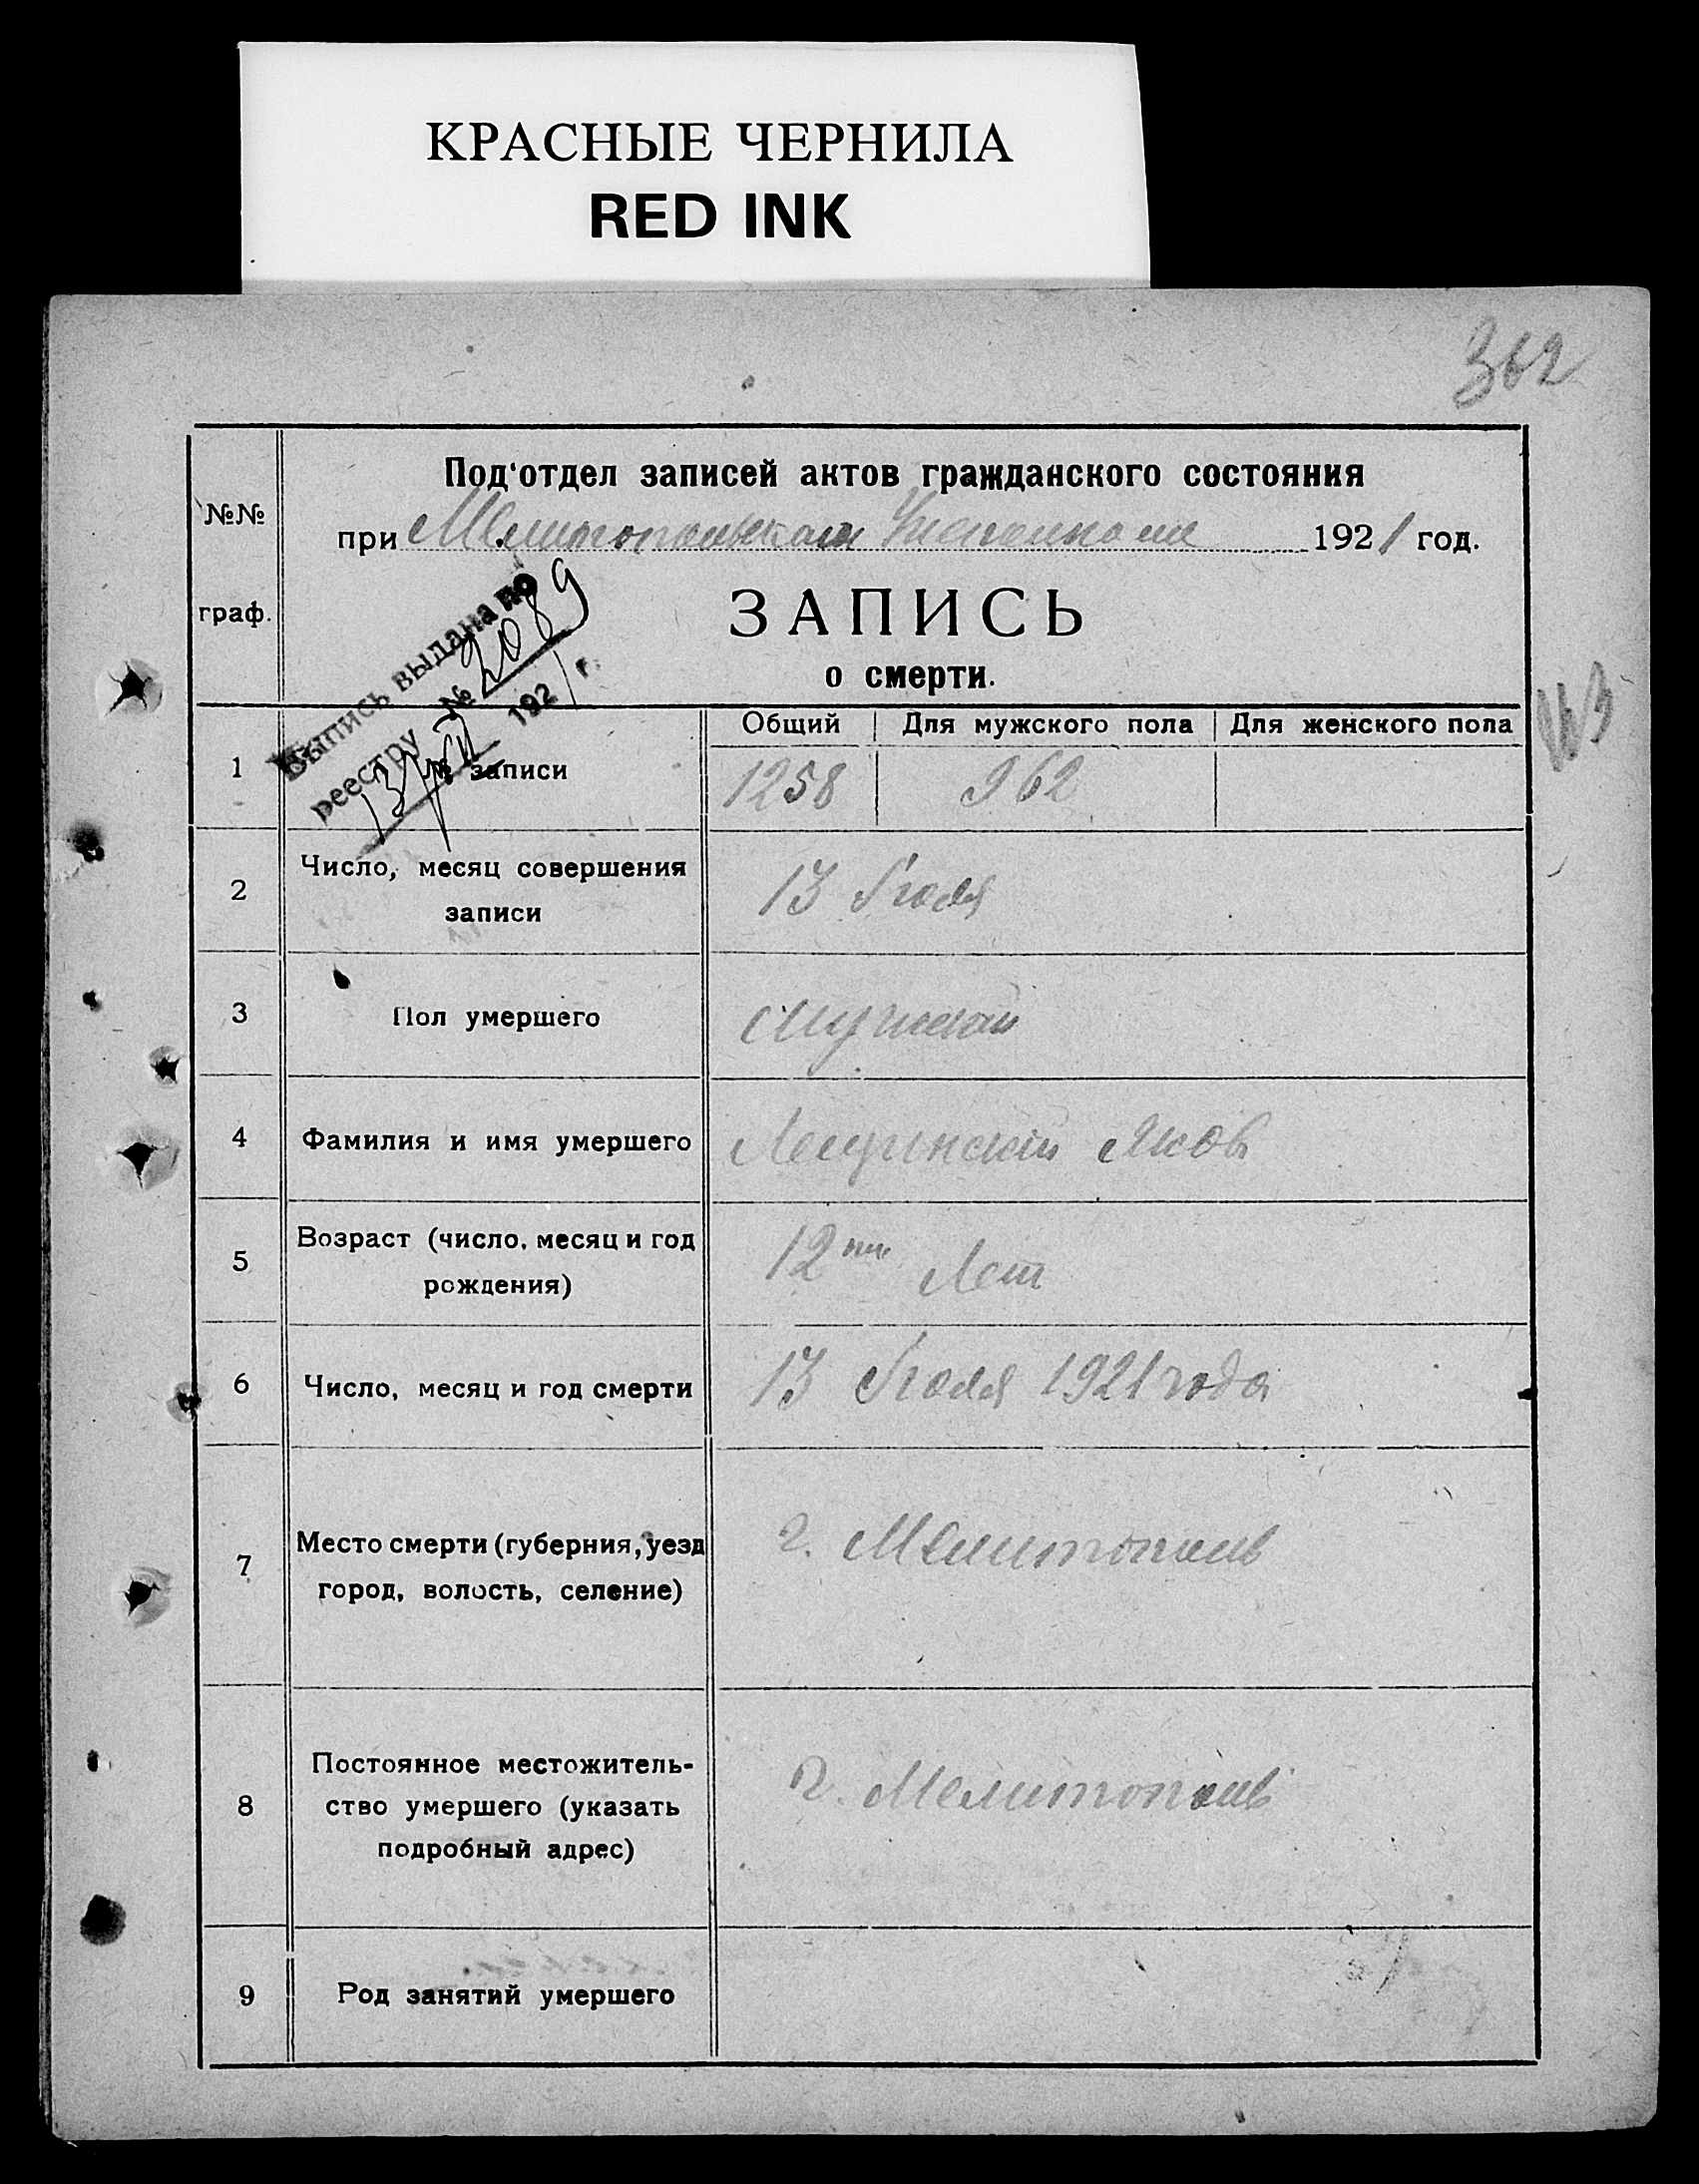 КРАСНЫЕ ЧЕРНИЛА
RED INK
362
Под'отдел записей актов гражданского состояния
№№
при Мелитопольском 1921 год.
граф.
ЗАПИСЬ
о смерти.
Выпись выдана по
реестру № 2089
13/VII 1921 г.
Общий Для мужского пола Для женского пола
1 № записи 1258 962
2 Число, месяц совершения
записи
13 Июля
3 Пол умершего мужской
4 Фамилия и имя умершего Лещинский Яков
5 Возраст (число, месяц и год
рождения)
12ти Лет
6 Число, месяц и год смерти 13 Июля 1921 года
7 Место смерти (губерния, уезд
город, волость, селение)
г. Мелитополь
8 Постоянное местожитель-
ство умершего (указать
подробный адрес)
г. Мелитополь
9 Род занятий умершего